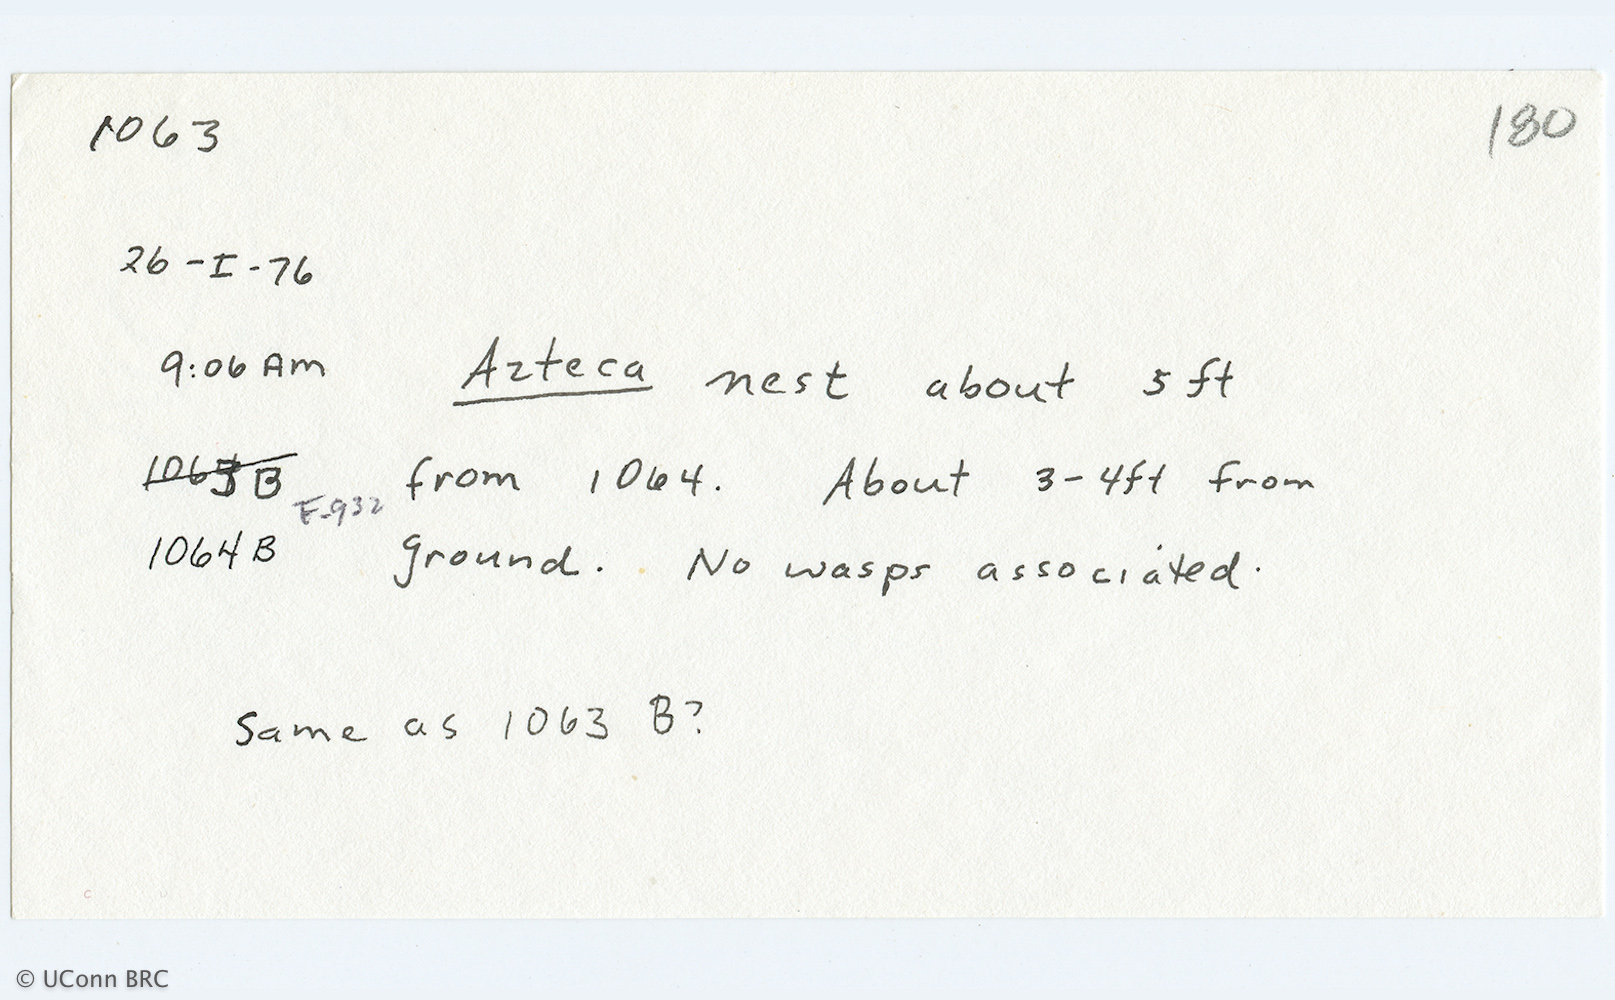 1063
180
26-I-76
9:06 Am Azteca nest about 5 ft
1063 B from 1064. About 3-4ft from
F-932
1064 B ground. No wasps associated.
Same as 1063 B?
© UConn BRC